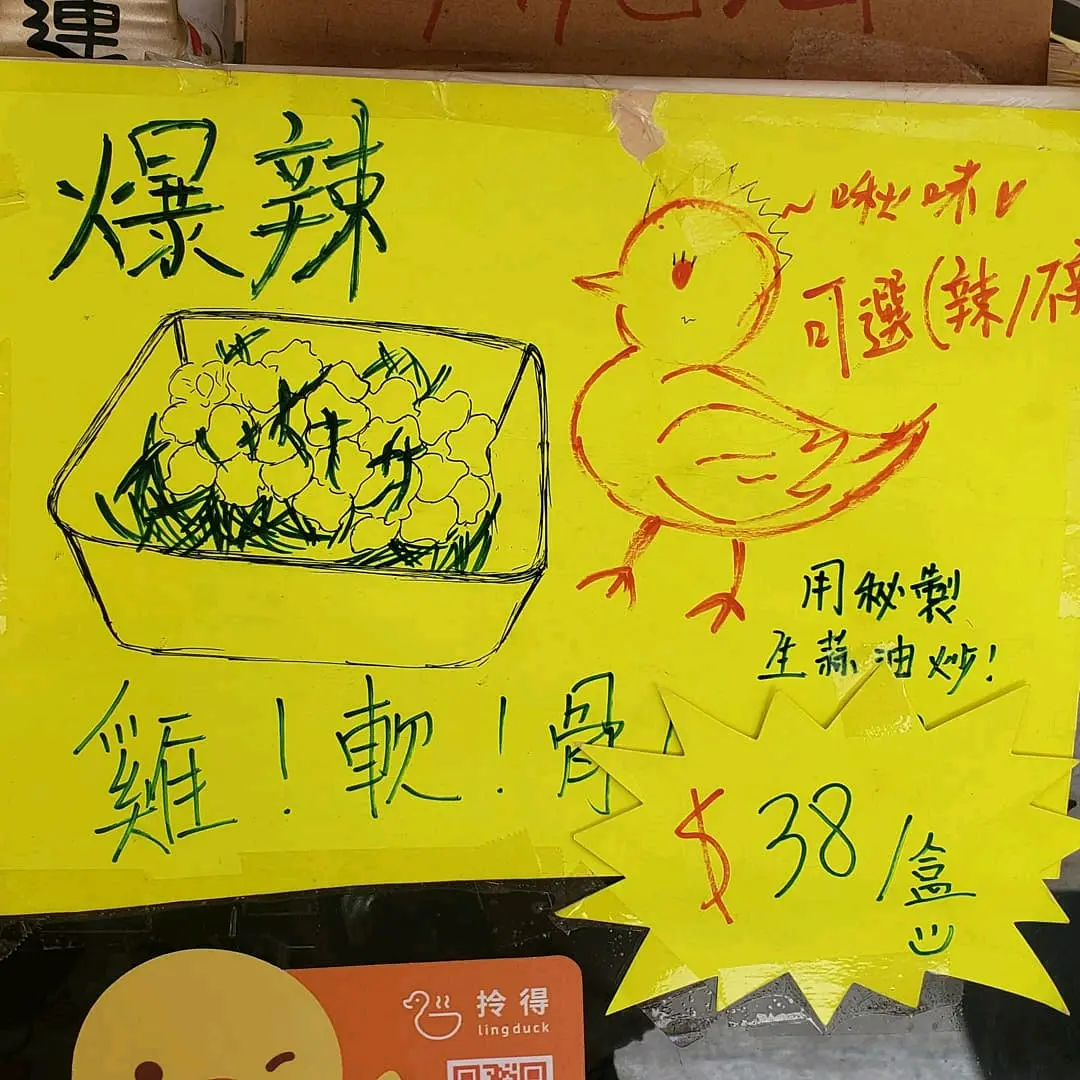 運
爆辣
~啾咪♥
可選(辣/不
用秘製
生蒜油炒!
雞!軟!骨!
$38/盒
拎得
lingduck